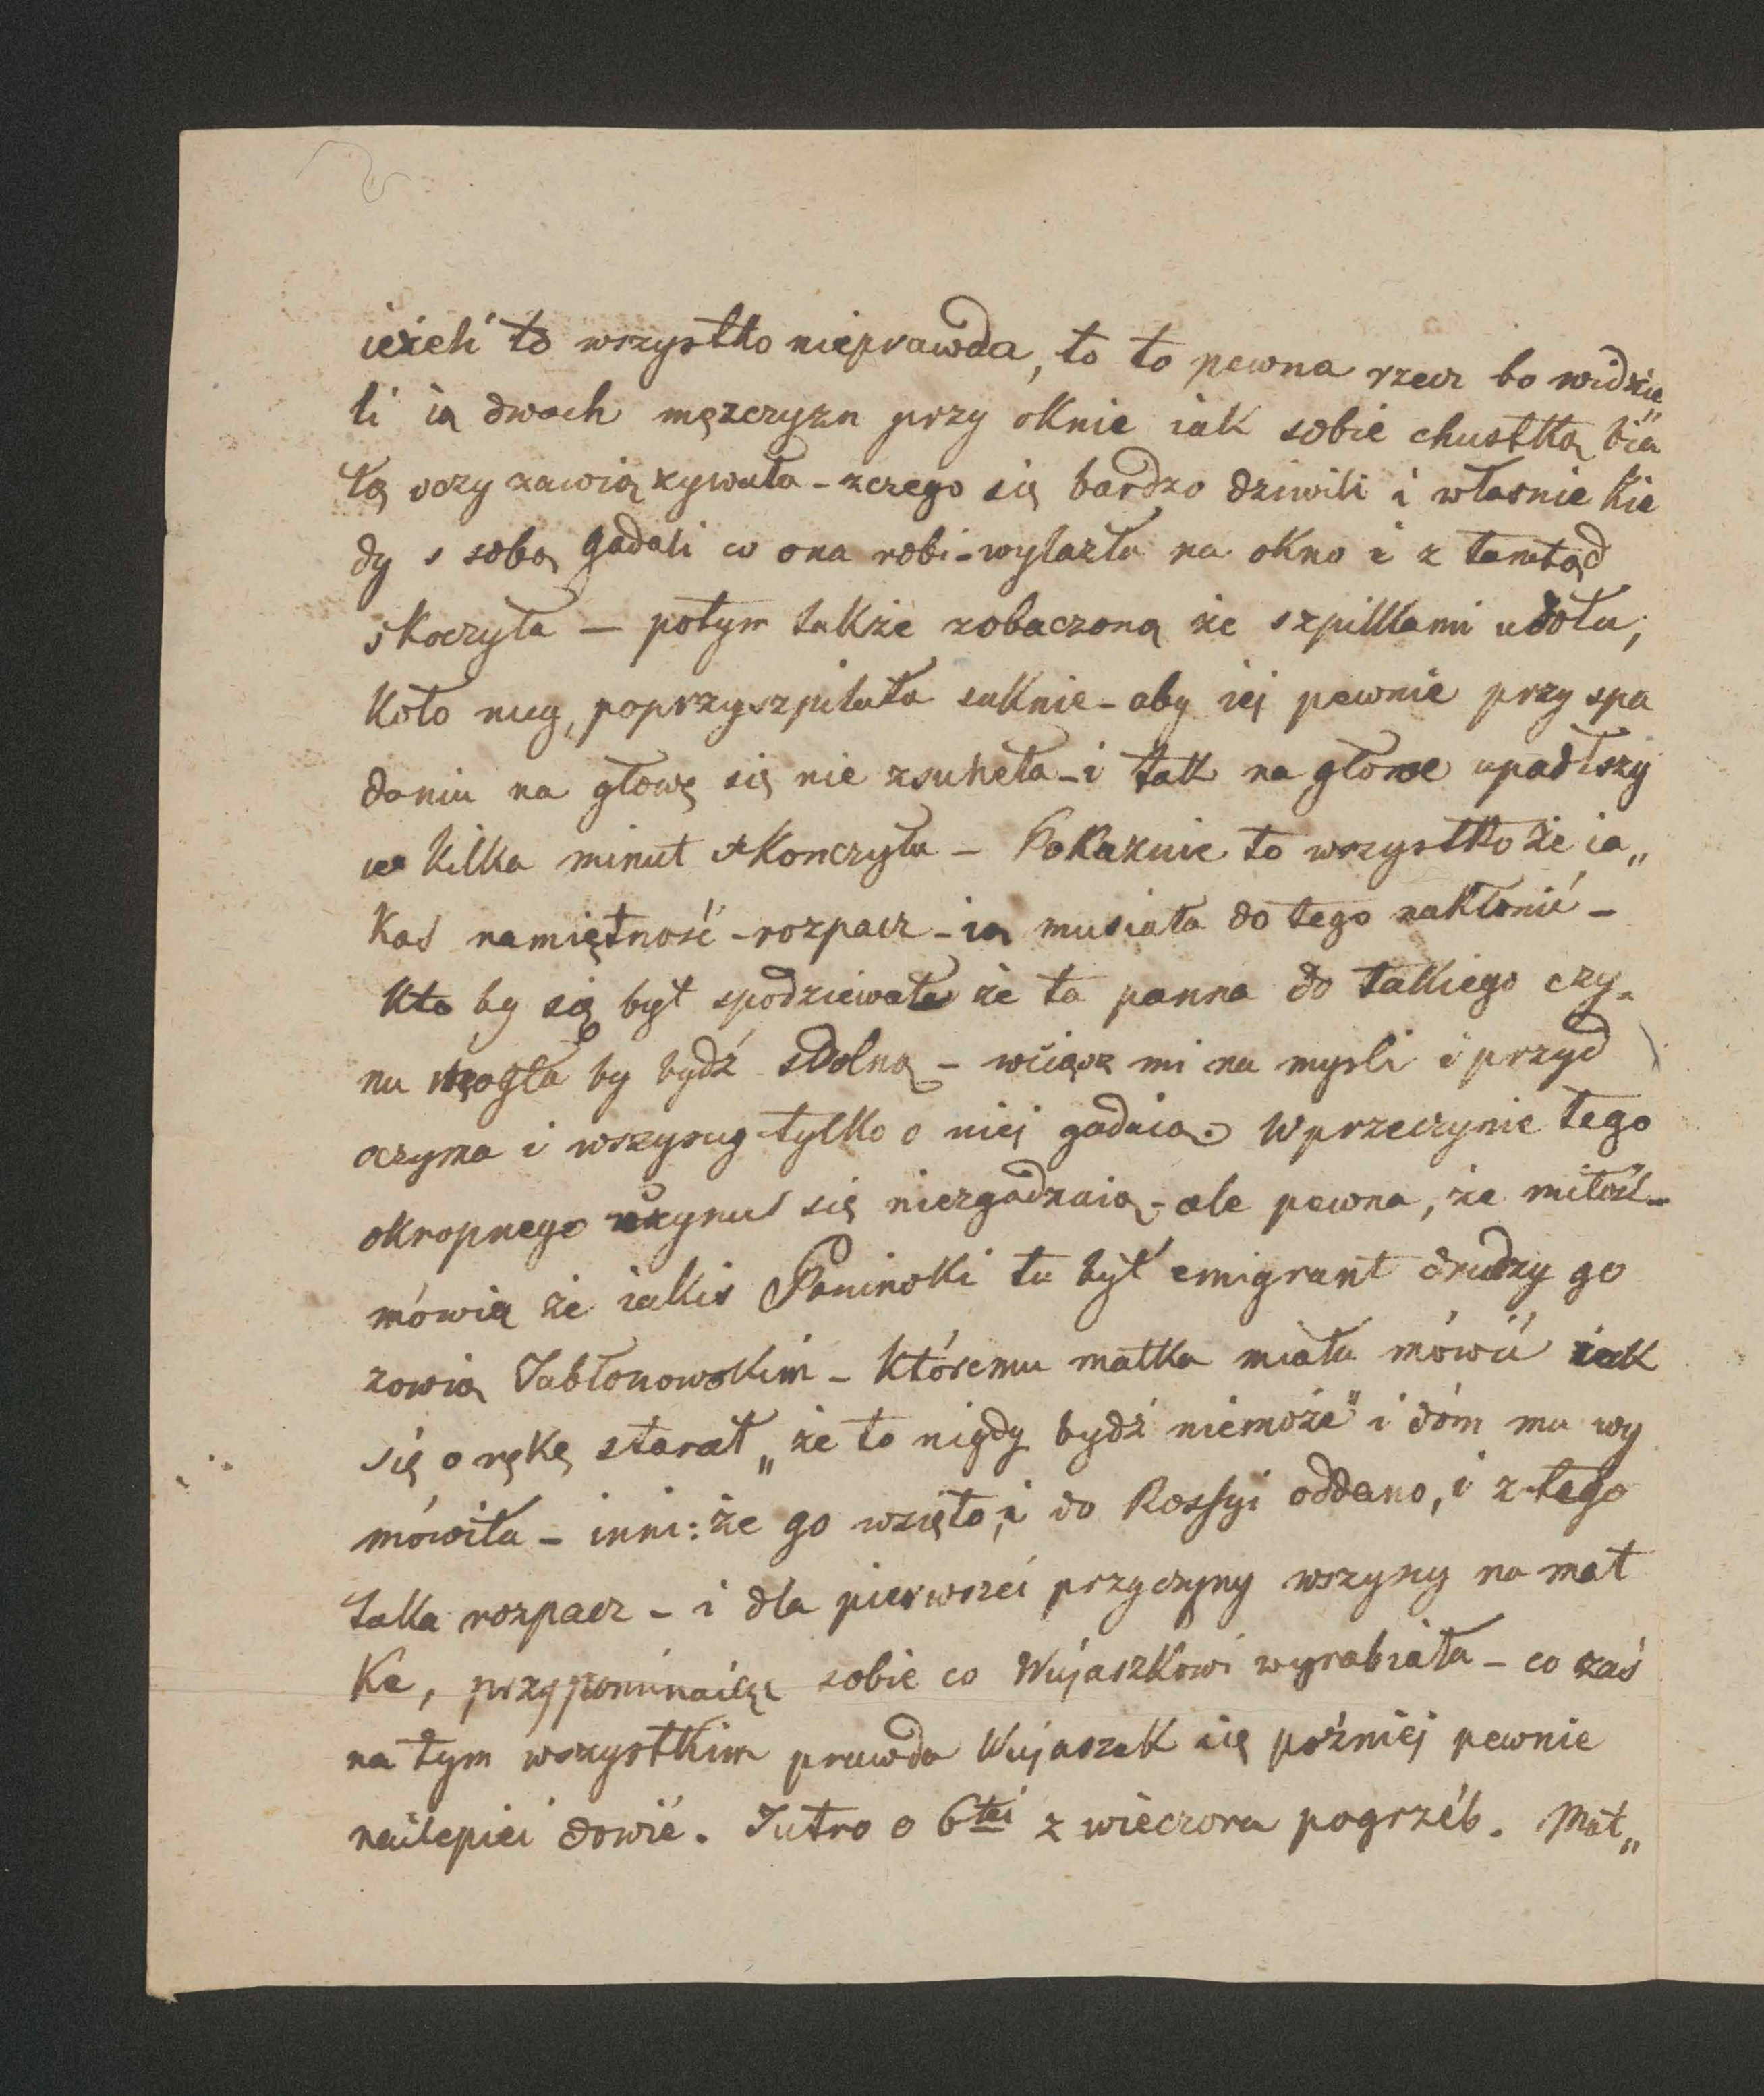 ieżeli to wszystko nieprawda, to to pewna rzecz bo widzie„
li ią dwoch męzczyzn przy oknie iak sobie chustką bia
łą oczy zawiązywała - zczego się bardzo dziwili i własnie kie
dy s sobą gadali co ona robi - wylazła na okno i z tamtąd
skoczyła — potym także zobaczoną że szpilkami udołu,
koło nug, poprzyszpilała suknie - aby iej pewnie przy spa
daniu na głowę się nie zsuneła - i tak na głowe upadłszy
w kilka minut skonczyła - Pokazuie to wszystko że ia„
kaś namiętność - rozpacz - ią musiała do tego nakłonić -
kto by się był spodziewał że ta panna do takiego czy„
nu mogła by bydź zdolną - wciąsz mi na mysli i przyd
oczyma i wszyscy tylko o niej gadaią. W przeczynie tego
okropnego czynu się niezgadzaią - ale pewna, że miłość -
mówią że iakis Poninski tu był emigrant drudzy go
zowią Jabłonowskim - któremu matka miała mówić iak
się o rękę starał „że to nigdy bydź niemoże" i dóm mu wy
mówiła - inni: że go wzięto, i do Rossyi oddano, i z tego
taka rozpacz - i dla pierwszei przyczyny wszyscy na mat
ke, przypominaiąc sobie co Wujaszkowi wyrabiała - co zaś
na tym wszystkim prawda Wujaszek się pożniej pewnie
nailepiei dowie. Jutro o 6tei z wieczora pogrzéb. Mat„